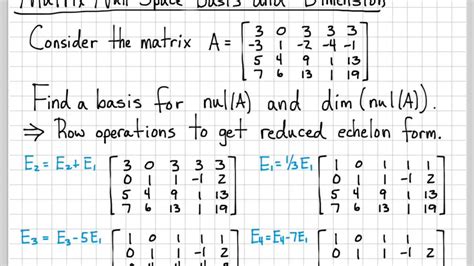 Matrix Null Space Basis and Dimension
Consider the matrix A = [3 0 3 3 3
-3 1 -2 -4 -1
5 4 9 1 13
7 6 13 1 19]
Find a basis for nul(A) and dim(nul(A)).
⇒ Row operations to get reduced echelon form.
E₂ = E₂+E₁ [3 0 3 3 3
0 1 1 -1 2
5 4 9 1 13
7 6 13 1 19]
E₁ = 1/3 E₁ [1 0 1 1 1
0 1 1 -1 2
5 4 9 1 13
7 6 13 1 19]
E₃ = E₃-5E₁ [1 0 1 1 1
0 1 1 -1 2
E₄ = E₄-7E₁ [1 0 1 1 1
0 1 1 -1 2